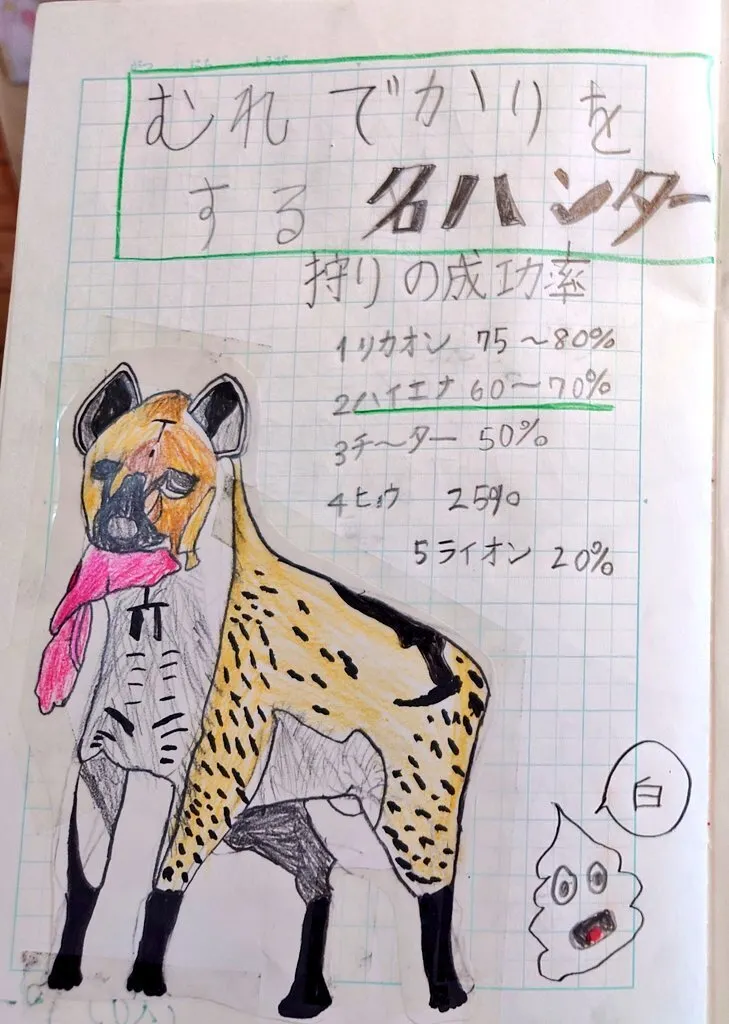 むれでかりを
する名ハンター
狩りの成功率
1リカオン 75～80%
2ハイエナ 60～70%
3チーター 50%
4ヒョウ 25%
5ライオン 20%
白